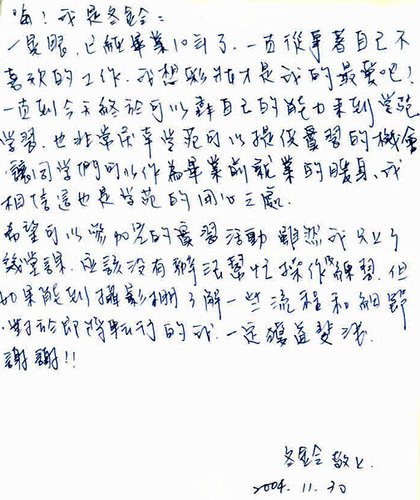 嗨！我是冬鈴：
一晃眼，已經畢業10年了．一直從事著自己不
喜歡的工作．我想彩妝才是我的最愛吧！
一直到今天終於可以靠自己的能力來到學苑
學習．也非常慶幸學苑可以提供實習的機會
，讓同學們可以作為畢業前就業的暖身．我
相信這也是學苑的用心之處．
希望可以參加您的實習活動 雖然我只上了
幾堂課．應該沒有辦法幫忙操作練習．但
如果能到攝影棚了解一些流程和細節
．對於即將轉行的我．一定獲益斐淺．
謝謝！！
冬鈴 敬上．
2004. 11. 30